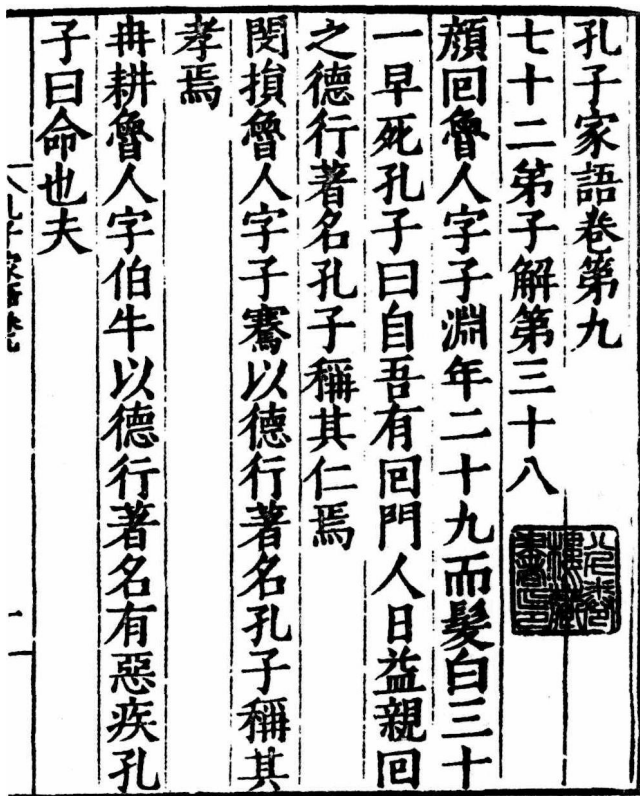 孔子家語卷第九
七十二弟子解第三十八
顔回魯人字子淵年二十九而髮白三十
一早死孔子曰自吾有回門人日益親回
之德行著名孔子稱其仁焉
閔損魯人字子騫以德行著名孔子稱其
孝焉
冉耕魯人字伯牛以德行著名有惡疾孔
子曰命也夫
孔子家語卷九
一